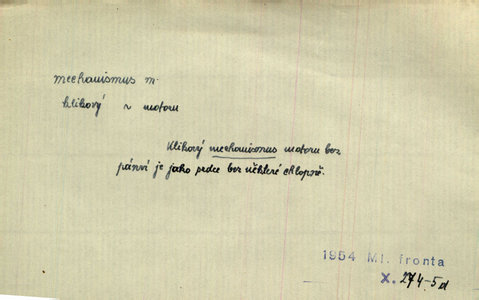 mechanismus m.
klikový ~ motoru
Klikový mechanismus motoru bez
pánví je jako srdce bez některé chlopně.
1954 Ml. fronta
X. 274-5d